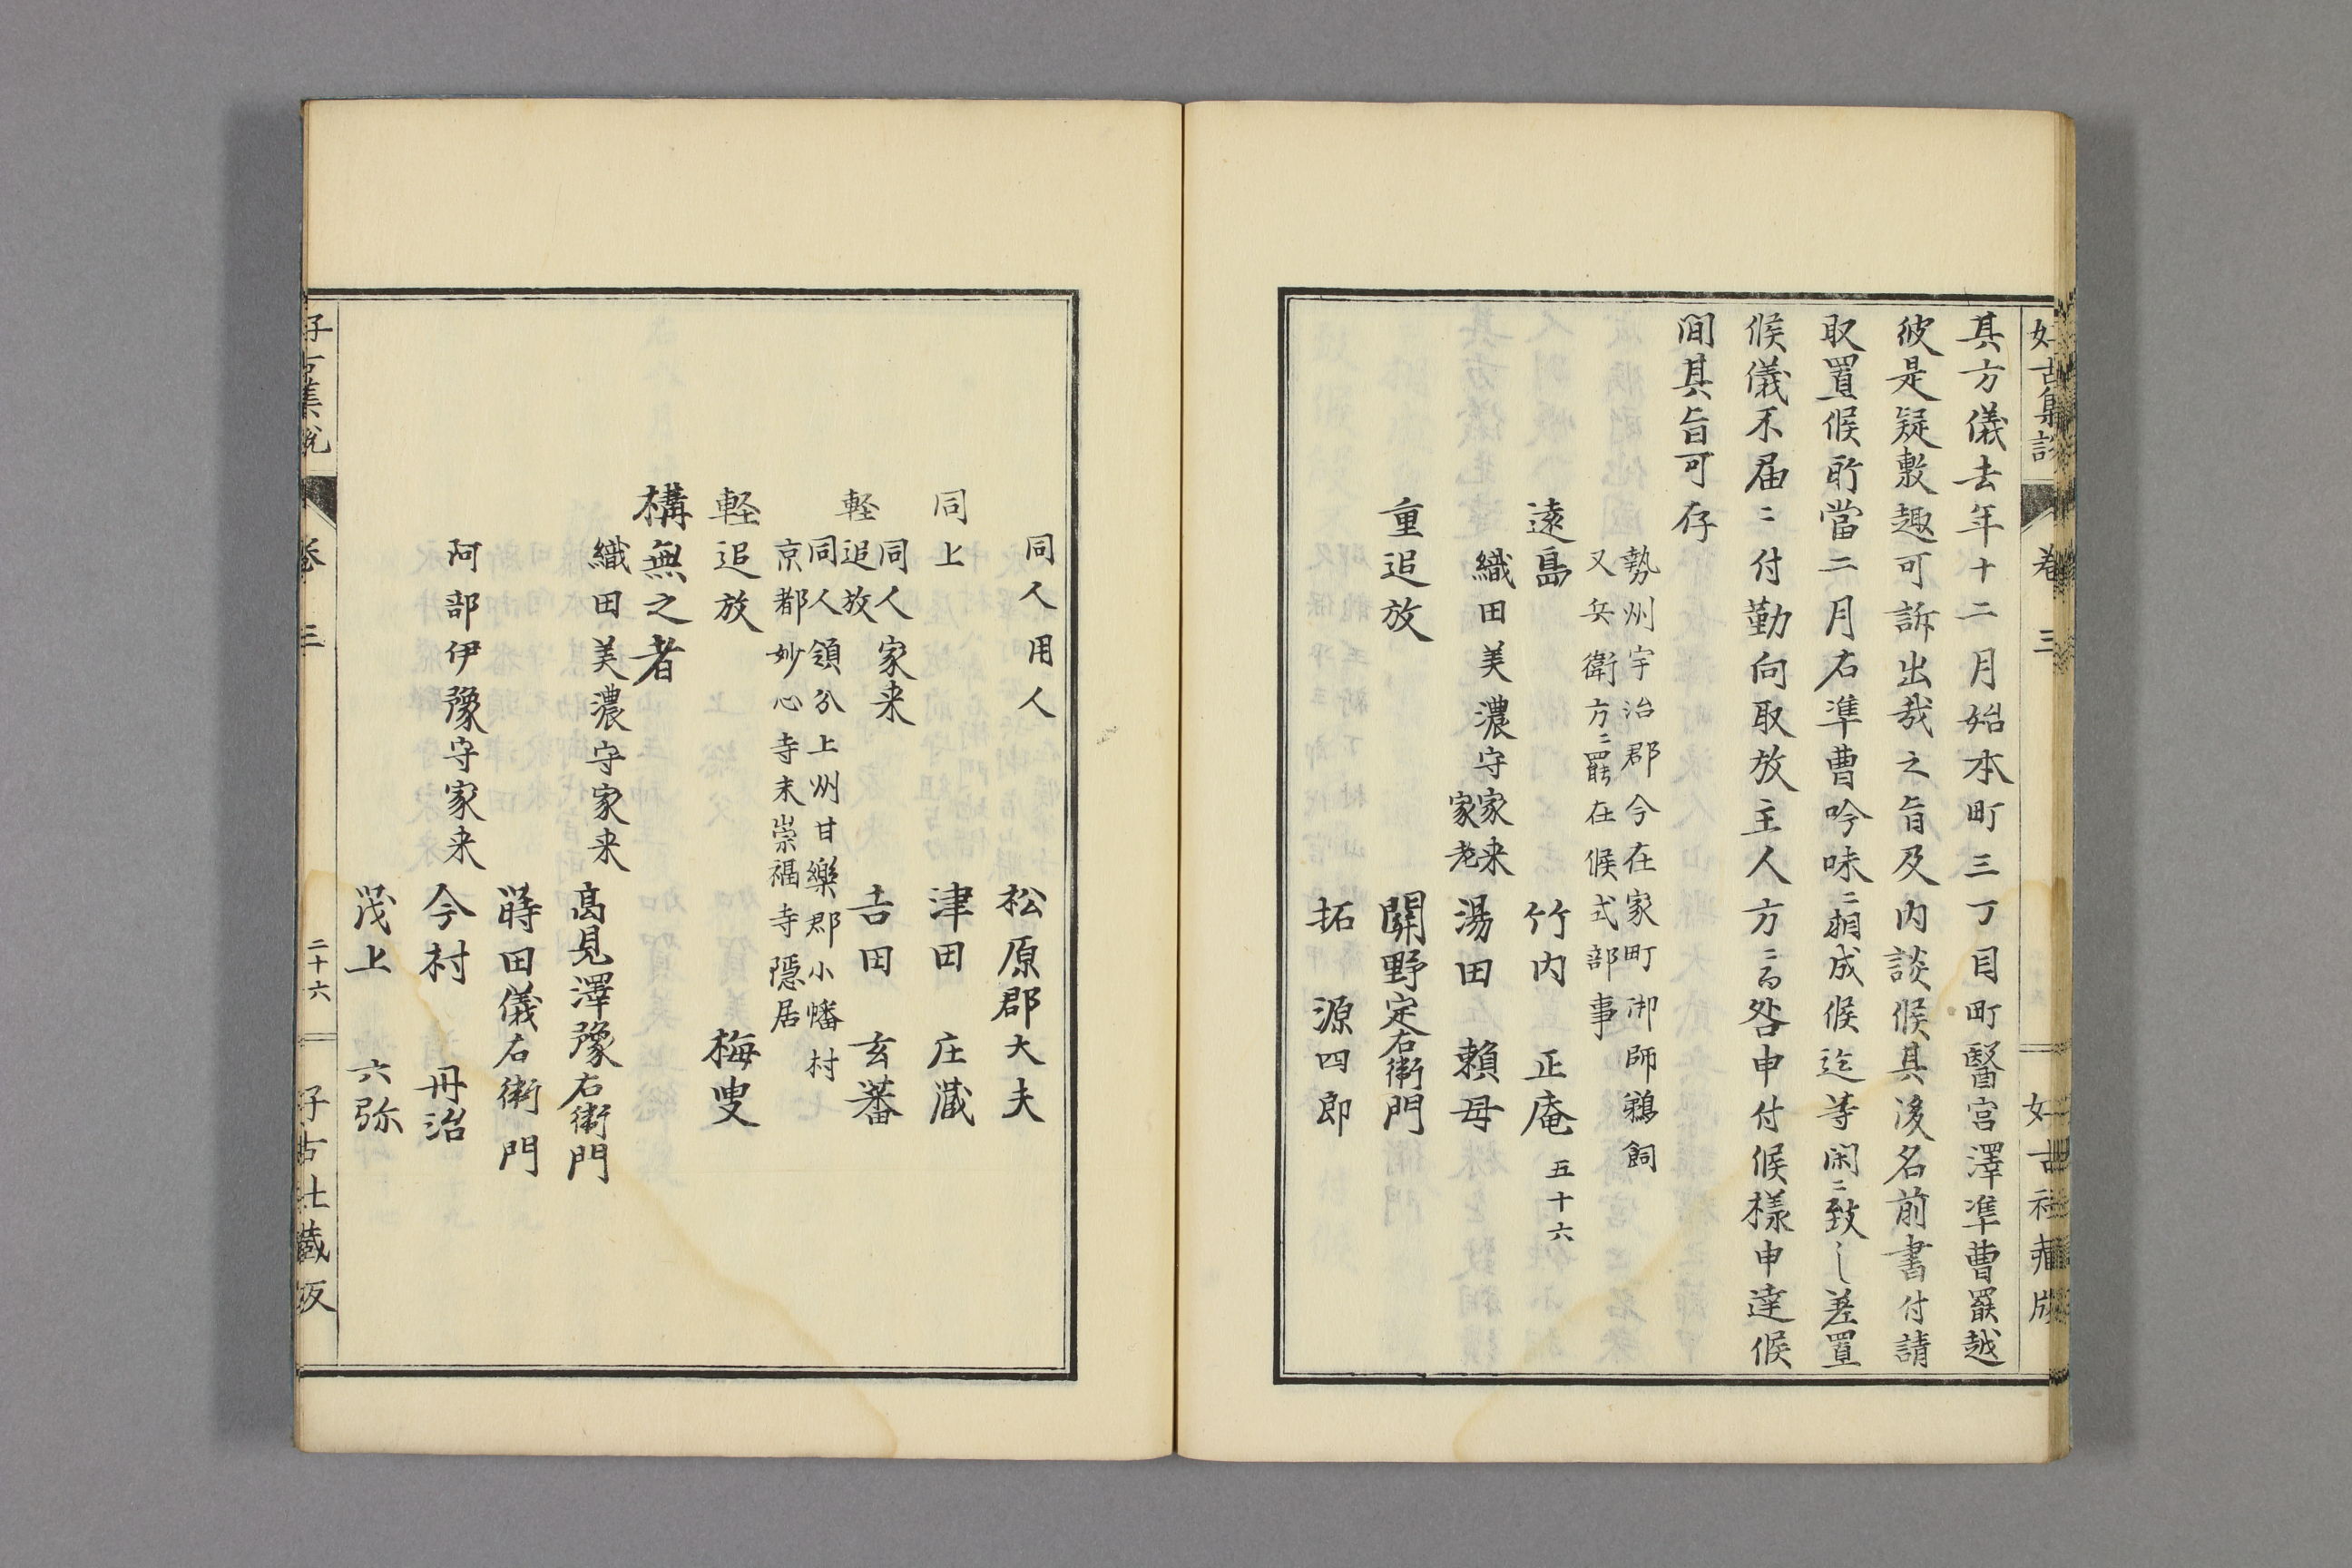 其方儀去年十二月始本町三丁目町醫宮澤準曹罷越
彼是疑敷趣可訴出哉之旨及内談候其後名前書付請
取置候所當二月右準曹吟味ニ相成候迄等閑ニ致し差置
候儀不届ニ付勤向取放主人方ニ而咎申付候様申達候
間其旨可存
勢州宇治郡今在家町御師鵜飼
又兵衛方ニ罷在候式部事
遠島 竹内 正庵 五十六
織田美濃守家来
家老 湯田 頼母
重追放 關野定右衛門
拓 源四郎
好古集説 卷三
好古社藏版
同人用人
松原郡大夫
同上 津田 庄藏
同人家来
軽追放 吉田 玄蕃
同人領分上州甘樂郡小幡村
京都妙心寺末崇福寺隠居
軽追放 梅叟
構無之者
織田美濃守家来
高見澤豫右衛門
蒔田儀右衛門
阿部伊豫守家来
今村 丹治
茂上 六弥
好古集説 卷三 二十六 好古社藏版